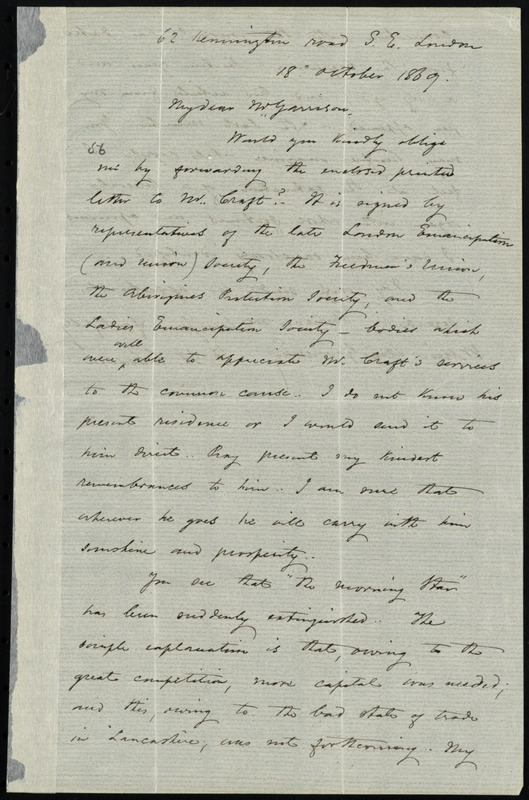 62 Kennington road S. E. London
18 October 1869.
My dear Mr Garrison,
Would you kindly oblige
56
me by forwarding the enclosed printed
letter to Mr. Craft? - It is signed by
representatives of the late London Emancipation
(and union) Society, the Freedmen's Union,
the Aborigines Protection Society, and the
Ladies Emancipation Society - bodies which
well
were able to appreciate Mr. Craft's services
to the common cause. I do not know his
present residence or I would send it to
him direct.. Pray present my kindest
remembrances to him.. I am sure that
wherever he goes he will carry with him
sunshine and prosperity..
You see that "the morning Star"
has been suddenly extinguished.. The
simple explanation is that, owing to the
great competition, more capital was needed;
and this, owing to the bad state of trade
in Lancashire, was not forthcoming.. My